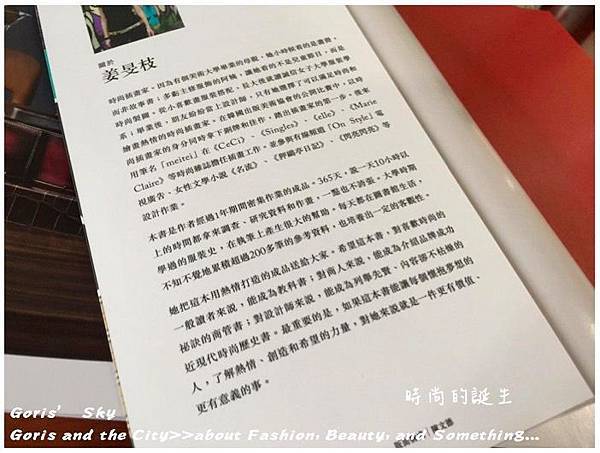 關於
姜旻枝
時尚插畫家。因為有個美術大學畢業的母親，她小時候看的是畫冊，
而非故事書；多虧主修服飾的阿姨，讓她看的不是兒童節目，而是
時尚製圖。從小喜歡畫服裝搭配，長大後就讀誠信女子大學服裝學
系；畢業後，朋友紛紛當上設計師，只有她選擇了可以滿足時尚和
繪畫熱情的時尚插畫家。在韓國出版美術協會的公開比賽中，以時
尚插畫家的身分同時拿下銅牌和佳作，踏出插畫家的第一步。後來
用筆名「meitei」在《CeCi》、《Singles》、《elle》、《Marie
Claire》等時尚雜誌擔任插畫工作，並參與有線頻道「On Style」電
視廣告、女性文學小說《名流》、《狎鷗亭日記》、《閃亮閃亮》等
設計作業。
本書是作者經過1年期間密集作業的成品。365天，說一天10小時以
上的時間都拿來調查、研究資料和作業，一點也不誇張。大學時期
學過的服裝史，在執筆上產生很大的幫助。每天都在圖書館生活，
不知不覺地累積超過200多筆的參考資料，也培養出一定的客觀性。
她把這本用熱情打造的成品送給大家。希望這本書，對喜歡時尚的
一般讀者來說，能成為教科書；對商人來說，能成為介紹品牌成功
祕訣的商管書；對設計師來說，能成為列舉先賢、內容源不枯燥的
近現代時尚歷史書。最重要的是，如果這本書能讓每個懷抱夢想的
人，了解熱情、創造和希望的力量，對她來說就是一件更有價值、
更有意義的事。
時尚的誕生
Goris' Sky
Goris and the City>>about Fashion, Beauty, and Something...